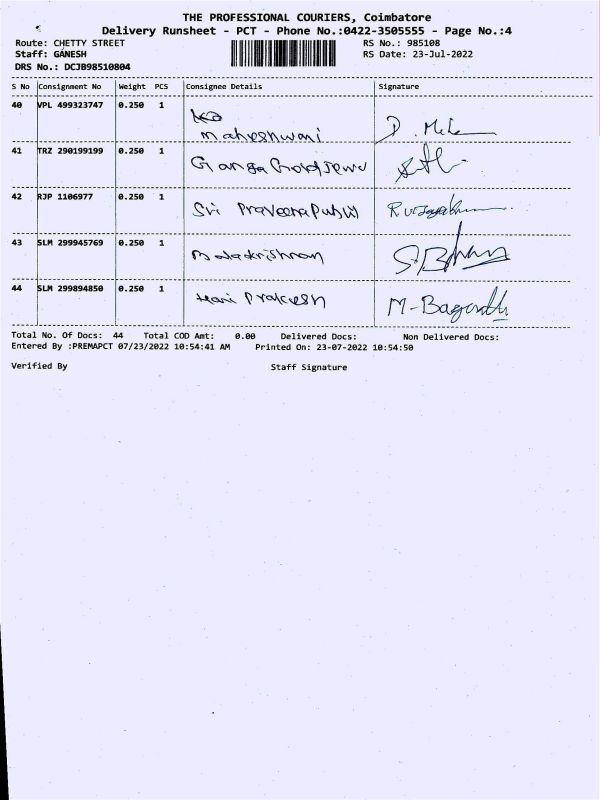 THE PROFESSIONAL COURIERS, Coimbatore
Delivery Runsheet - PCT - Phone No.:0422-3505555 - Page No.:4
Route: CHETTY STREET RS No.: 985108
Staff: GANESH RS Date: 23-Jul-2022
DRS No.: DCJB98510804
S No Consignment No Weight PCS Consignee Details Signature
40 VPL 499323747 0.250 1
Maheshwari D. 
41 TRZ 290199199 0.250 1
Ganga Gold Jewu
42 RJP 1106977 0.250 1
Sri Praveena
43 SLM 299945769 0.250 1
Balakrishnan
44 SLM 299894850 0.250 1
Hari Prakesh M-
Total No. Of Docs: 44 Total COD Amt: 0.00 Delivered Docs: Non Delivered Docs:
Entered By :PREMAPCT 07/23/2022 10:54:41 AM Printed On: 23-07-2022 10:54:50
Verified By Staff Signature